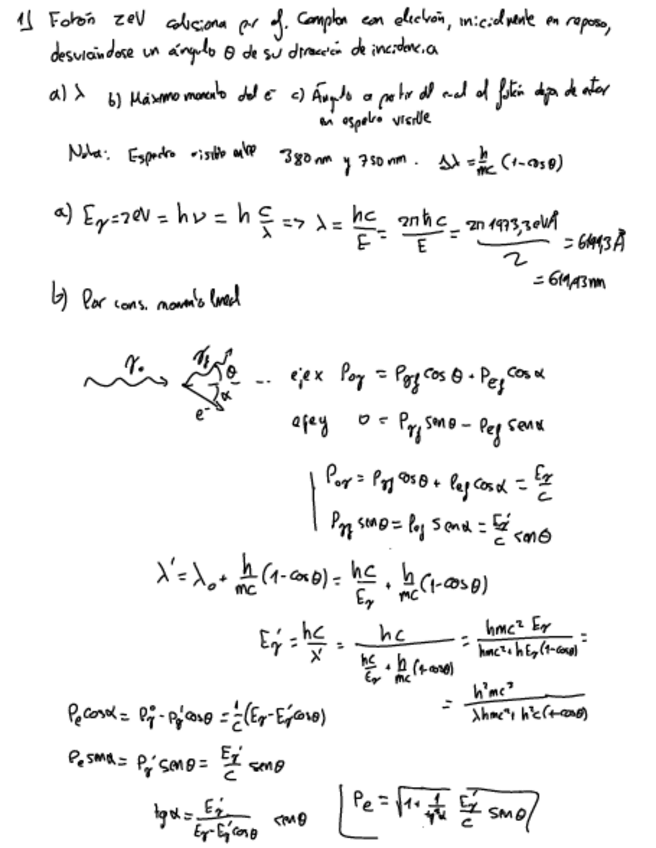 1) Fotón 2eV colisiona por ef. Compton con electrón, inicialmente en reposo,
desviándose un ángulo θ de su dirección de incidencia
a) λ b) Máximo momento del e⁻ c) Ángulo a partir del cual el fotón deja de estar
en espectro visible
Nota: Espectro visible entre 380 nm y 750 nm. Δλ = h/mc (1-cosθ)
a) Eγ = 2eV = hν = h c/λ => λ = hc/E = 2πħc/E = 2π 1973,3eVÅ/2 = 6199,3 Å
= 619,93 nm
b) Por cons. momento lineal
γ₀ γf θ α e⁻ ... eje x P₀γ = Pγf cos θ + Pef cos α
eje y 0 = Pγf senθ - Pef senα
P₀γ = Pγf cosθ + Pef cosα = Eγ/c
Pγf senθ = Pef senα = Eγ'/c senθ
λ' = λ₀ + h/mc (1-cosθ) = hc/Eγ + h/mc (1-cosθ)
Eγ' = hc/λ' = hc/(hc/Eγ + h/mc (1-cosθ)) = hmc² Eγ/(hmc² + hEγ(1-cosθ)) =
= h²mc³/(λhmc² + h²c(1-cosθ))
Pe cosα = Pγ⁰ - Pγ' cosθ = 1/c (Eγ - Eγ' cosθ)
Pe senα = Pγ' senθ = Eγ'/c senθ
tgα = Eγ'/(Eγ - Eγ' cosθ) senθ
Pe = √(1 + 1/tg²α) Eγ'/c senθ